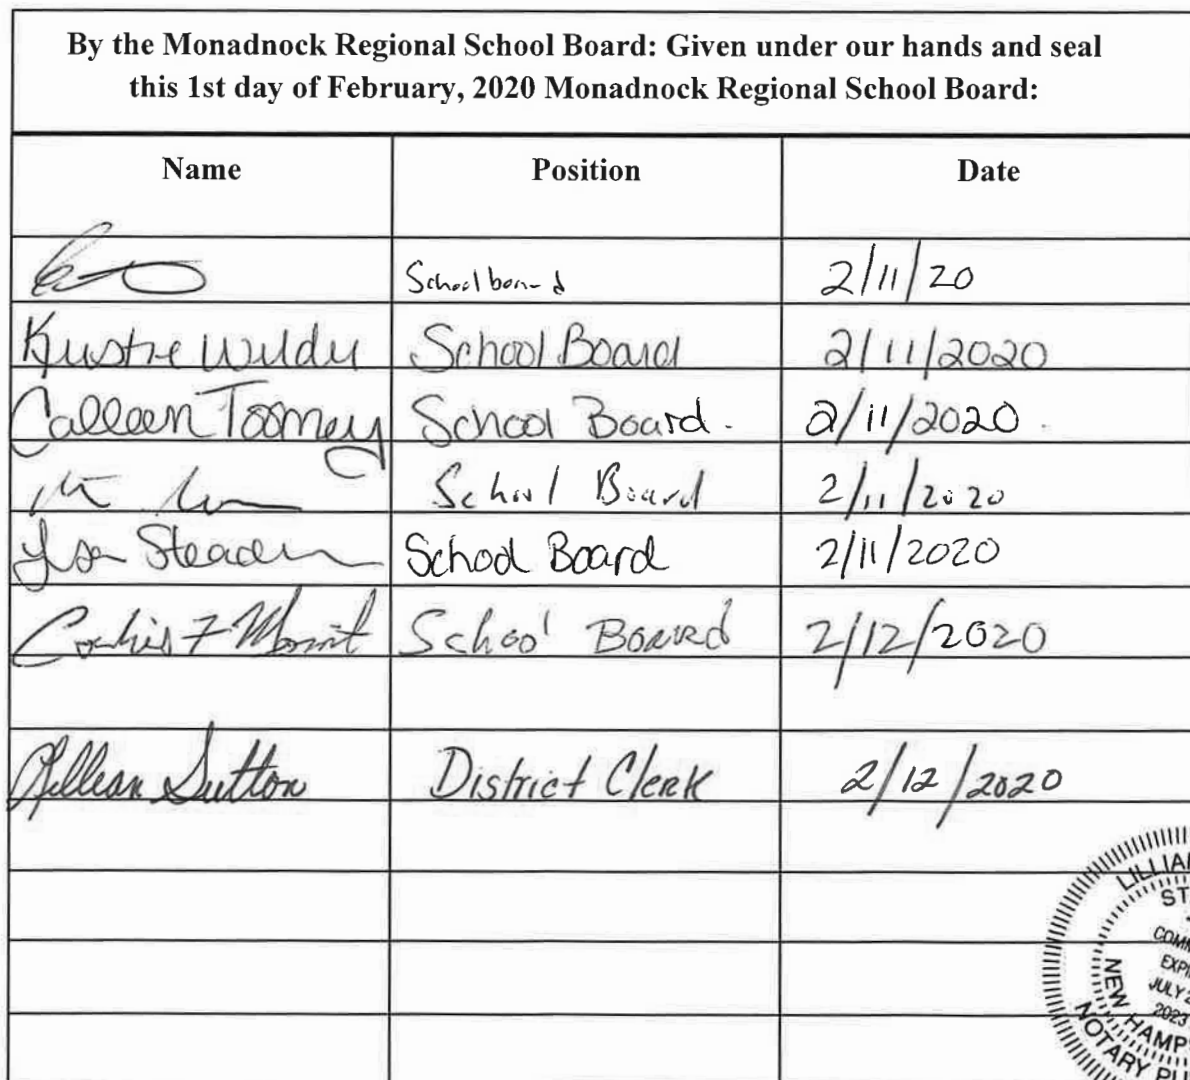 By the Monadnock Regional School Board: Given under our hands and seal
this 1st day of February, 2020 Monadnock Regional School Board:
Name Position Date
School board 2/11/20
Kristie Wildy School Board 2/11/2020
Colleen Toomey School Board. 2/11/2020
School Board 2/11/2020
Lisa Steadman School Board 2/11/2020
School Board 2/12/2020
Lillian Sutton District Clerk 2/12/2020
LILLIA
ST
COMM
EXPI
JULY 2
2023
NEW HAMP
NOTARY PU